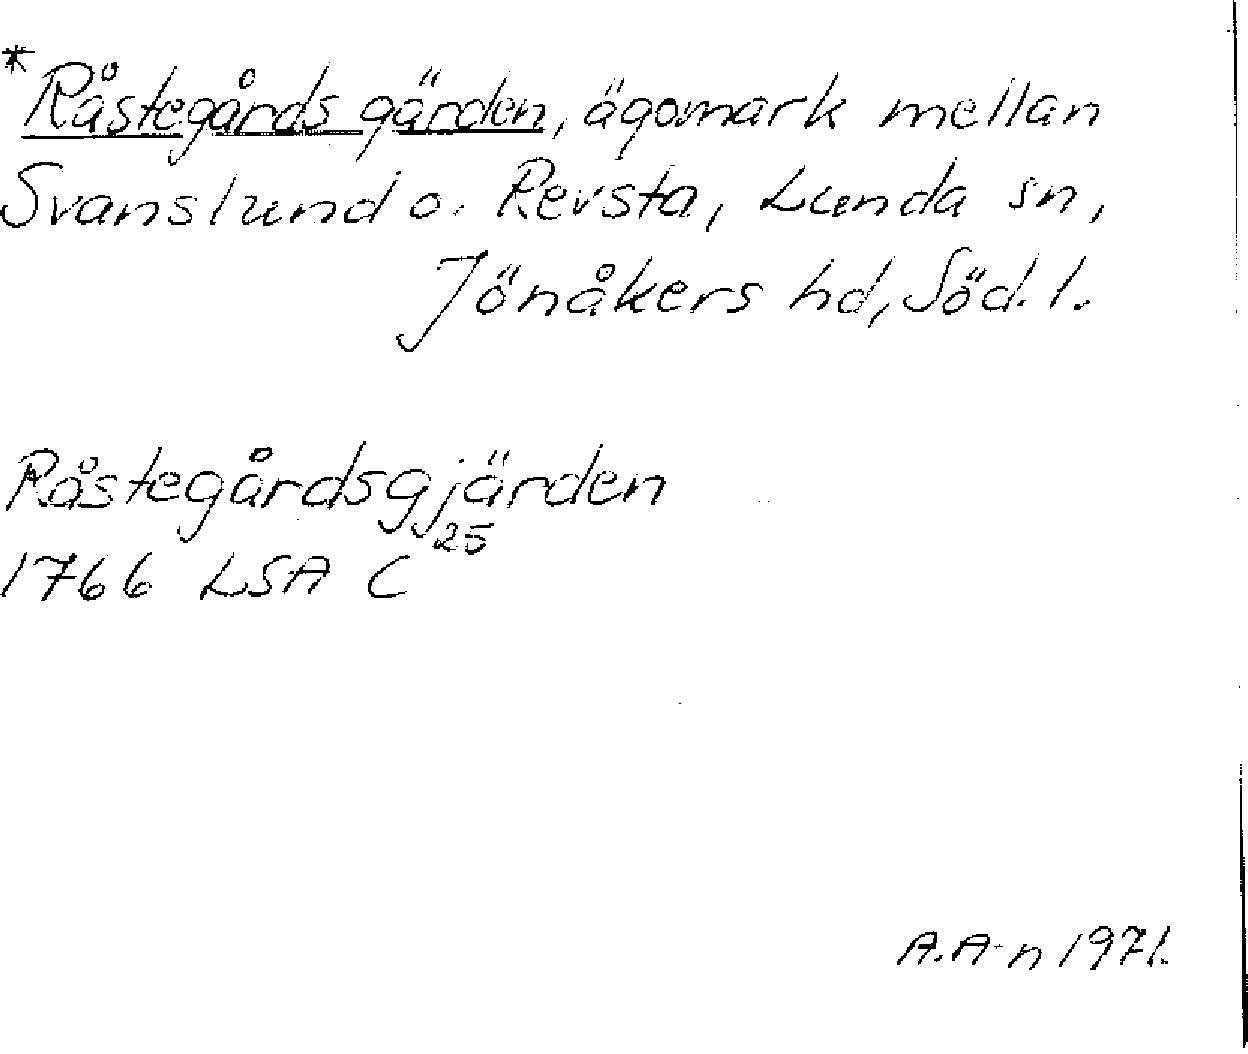 *Råstegårds gärden, ägomark mellan
Svanslund o. Revsta, Lunda sn,
Jönåkers hd, Söd. l.
Råstegårdsgjärden
1766 LSA C²⁵
A.A-n 1971.